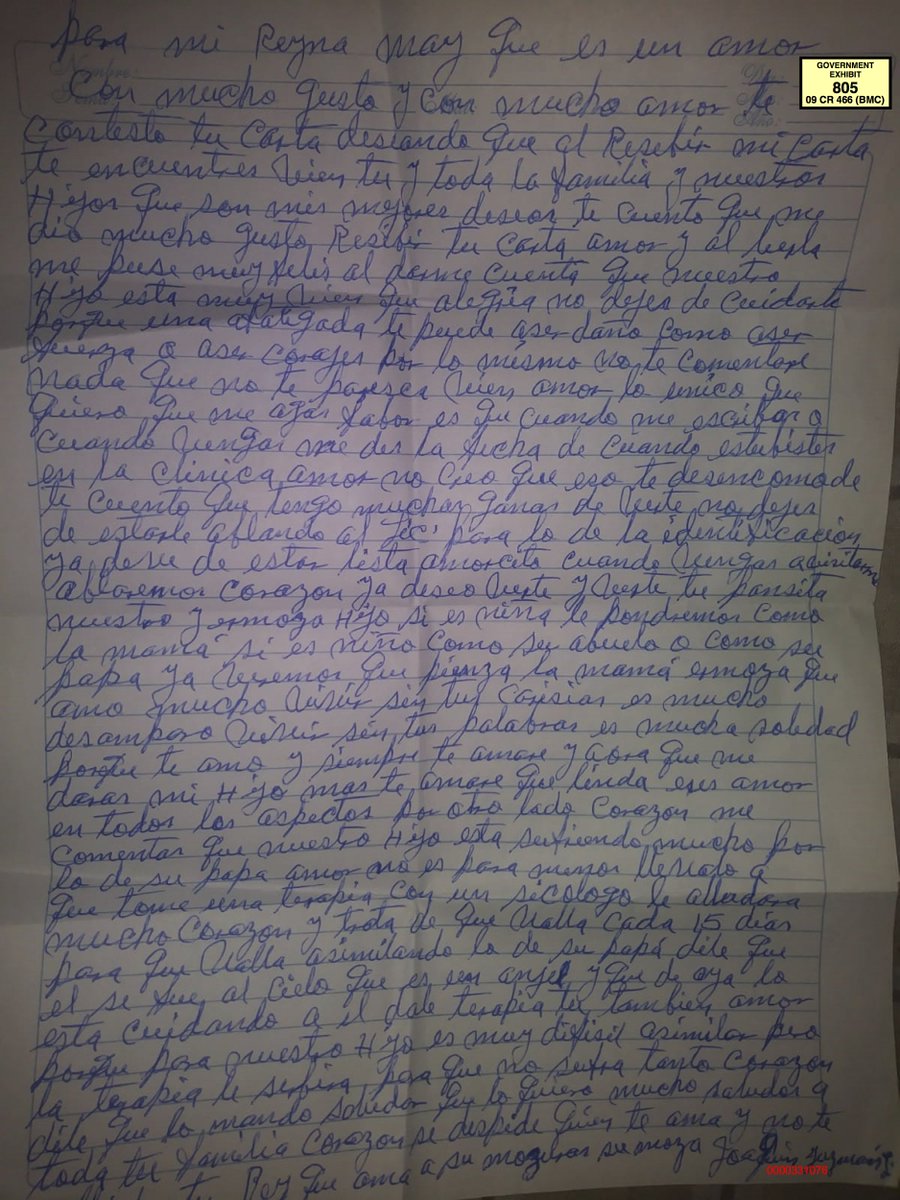 para mi Reyna may que es un amor
GOVERNMENT
EXHIBIT
805
09 CR 466 (BMC)
Con mucho gusto y con mucho amor te
contesto tu Carta deseando que al Resebir mi Carta
te encuentres vien tu y toda la familia y nuestros
Hijos que son mis mejores deseos te cuento que me
dio mucho gusto Resibir tu Carta amor y al leerla
me puse muy felis al darme cuenta que nuestro
Hijo esta muy vien que alegria no dejes de cuidarte
porque una te puede aser daño como aser
fuerza o aser corajes por lo mismo no te comentare
nada que no te paresca vien amor lo unico que
quiero que me agas fabor es que cuando me escribas o
cuando vengas me des la fecha de cuando estubistes
en la clinica amor no creo que eso te desencomode
te cuento que tengo muchas ganas de verte no dejes
de estarle ablando al Lic. para lo de la identificación
ya deve de estar lista amorcito cuando vengas
ablaremos corazon ya deseo verte y verte tu pansita
nuestro y ermozo Hijo si es niña le pondremos como
la mamá si es niño como su abuelo o como su
papa ya veremos que pienza la mamá ermoza que
amo mucho vivir sin tus carisias es mucho
desamparo vivir sin tus palabras es mucha soledad
porque te amo y siempre te amare y aora que me
daras mi Hijo mas te amare que linda eres amor
en todos los aspectos por otro lado corazon me
comentas que nuestro Hijo esta sufriendo mucho por
lo de su papa amor no es para menos llevalo a
que tome una terapia con un sicologo le alludara
mucho corazon y trata de que valla cada 15 dias
para que valla asimilando lo de su papá dile que
el se fue al cielo que es un anjel y que de aya lo
esta cuidando a el dale terapia tu tambien amor
porque para nuestro Hijo es muy difisil asimilar pero
la terapia le serbira para que no sufra tanto corazon
dile que lo mando saludar que lo quiero mucho saludos a
toda tu familia corazon se despide quien te ama y no te
tu Rey que ama a su Joaquin Guzman L.
0000331076